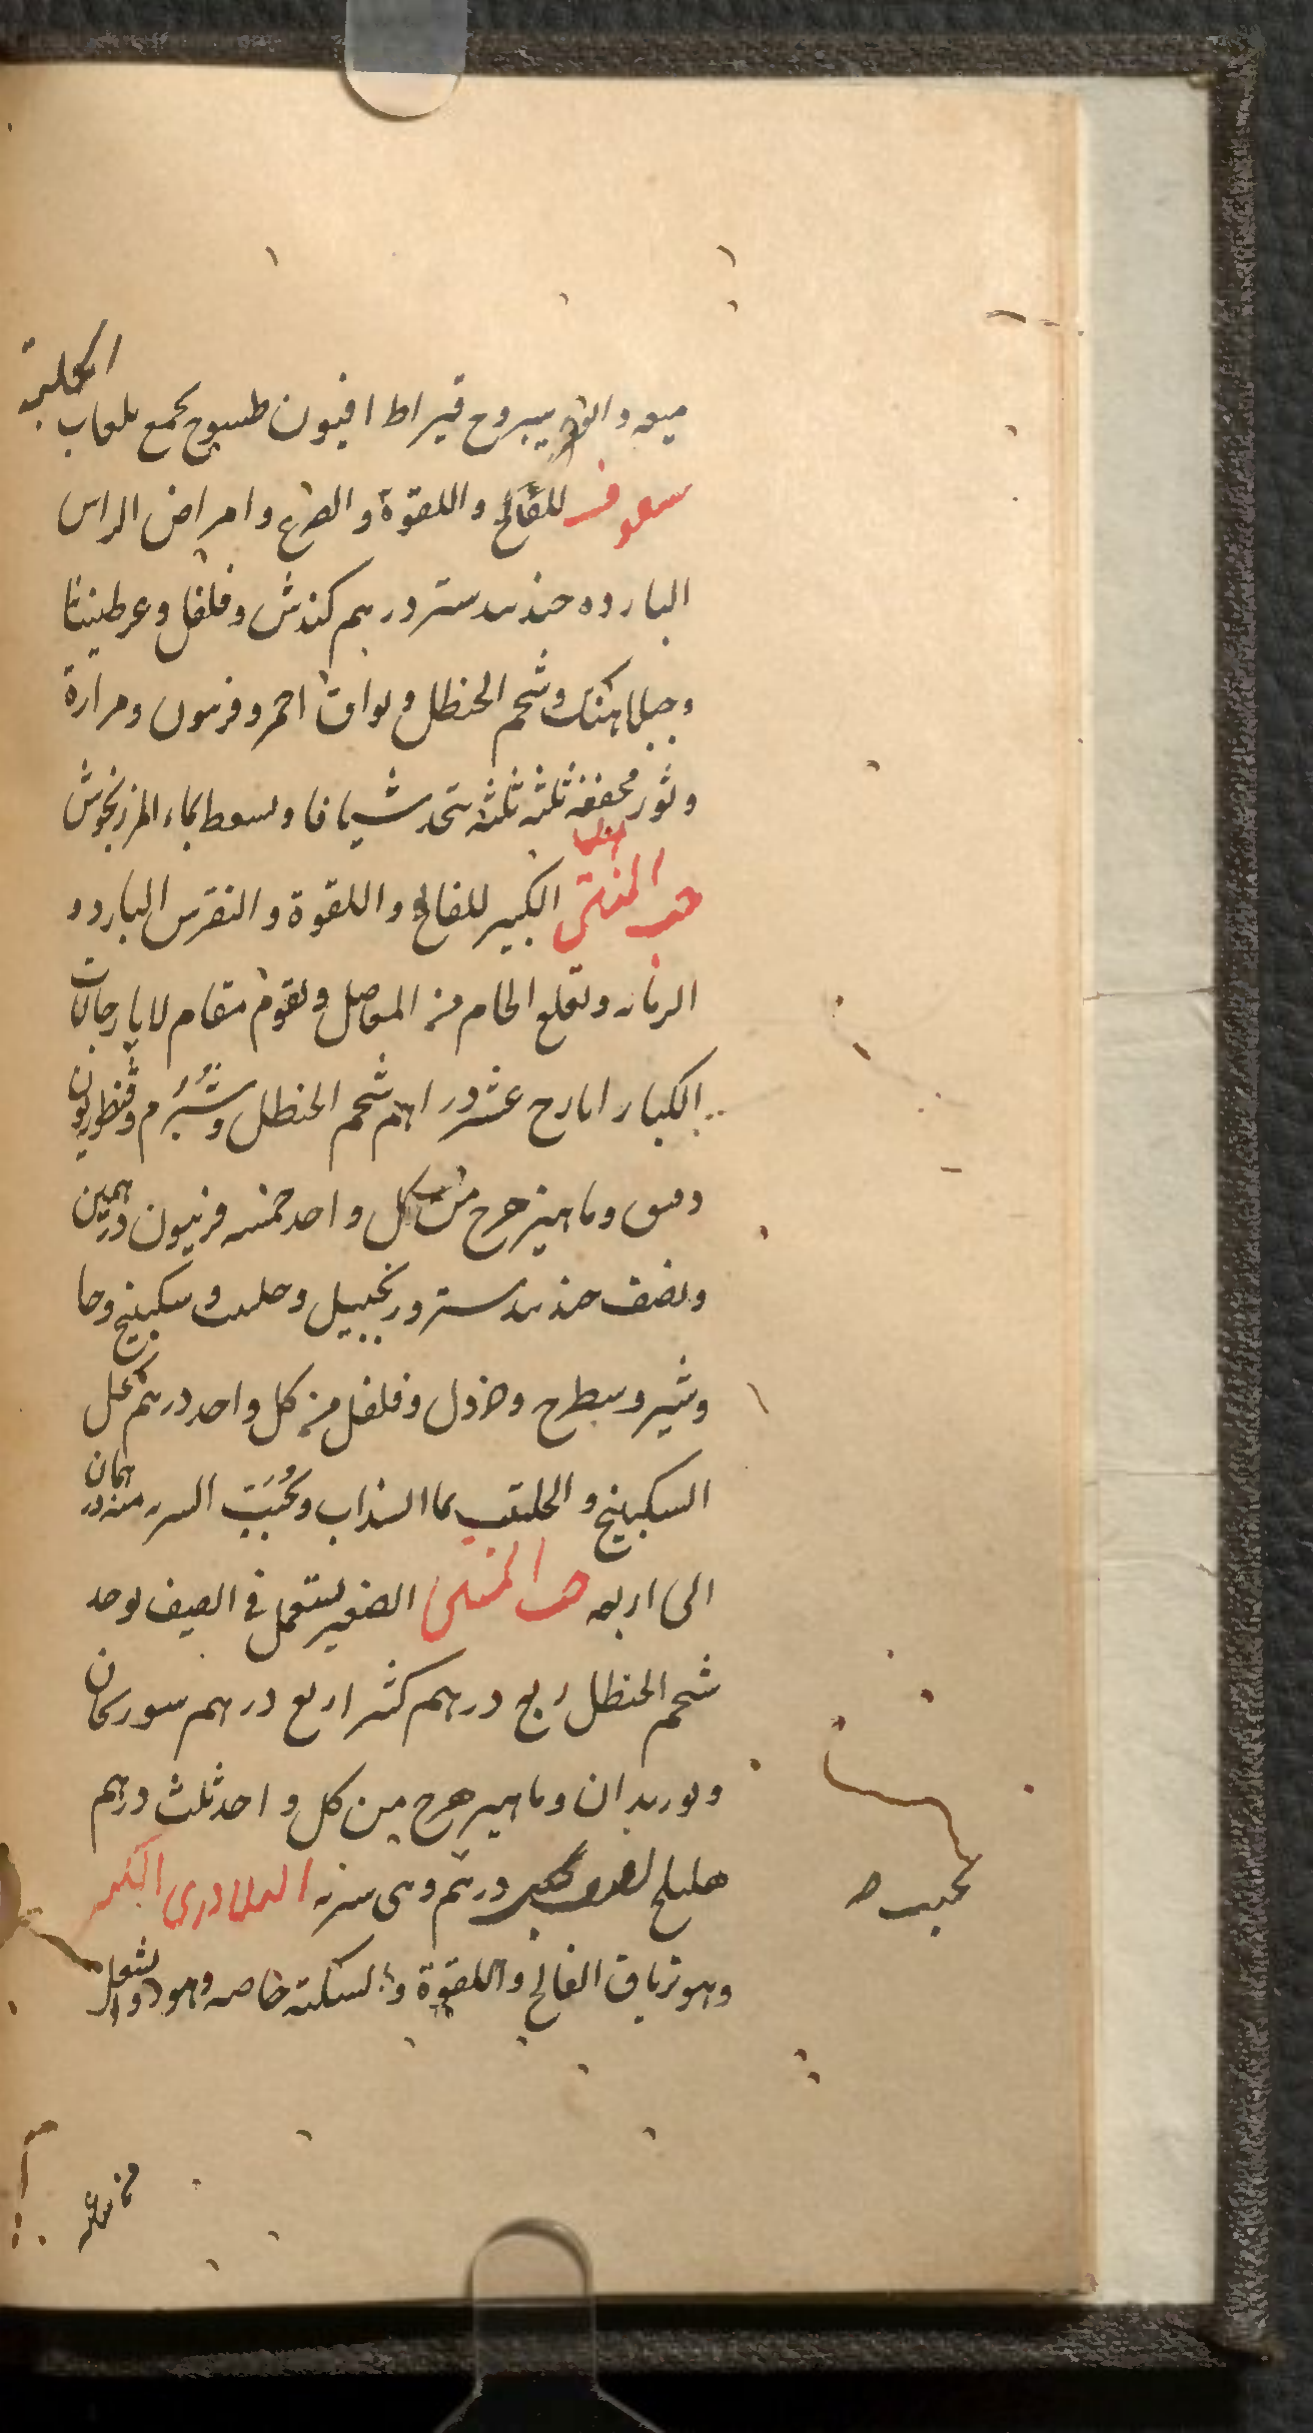 ميعه يبروح قيراط افيون طسوج يجمع بلعاب الحلبة
سعوف للفالج واللقوة والصرع وامراض الراس
البارده جندبيدستر درهم كندش وفلفل وعرطنيثا
وجبلاهنك وشحم الحنظل احمر وفربيون ومرارة
وثور مجففه ثلثه ثلثه يتخذ شيافا ويسعط بماء المرزنجوش
حب المنتن الكبير للفالج واللقوة والنقرس البارد و
ويقلع الخام من المفاصل ويقوم مقام الايارجات
الكبار ايارج عشر دراهم شحم الحنظل وشبرم وقنطوريون
دقيق وماهيزهرج من كل واحد خمسه فربيون درهمين
ونصف جندبيدستر وزنجبيل وحلتيت وسكبينج وجا
وشير وسيطرج وخردل وفلفل من كل واحد درهم يحل
السكبينج والحلتيت بما السذاب ويحبب الشربه منه درهمان
الى اربعه حب المنتن الصغير يستعمل في الصيف يوخذ
شحم الحنظل ربع درهم كثيرا ربع درهم سورنجان
وبوزيدان وماهيزهرج من كل واحد ثلث درهم
هليلج اصفر درهم وهى شربه البلادرى الكبير
يحبب صح
وهو ترياق الفالج واللقوة والسكته خاصه وهو دواء